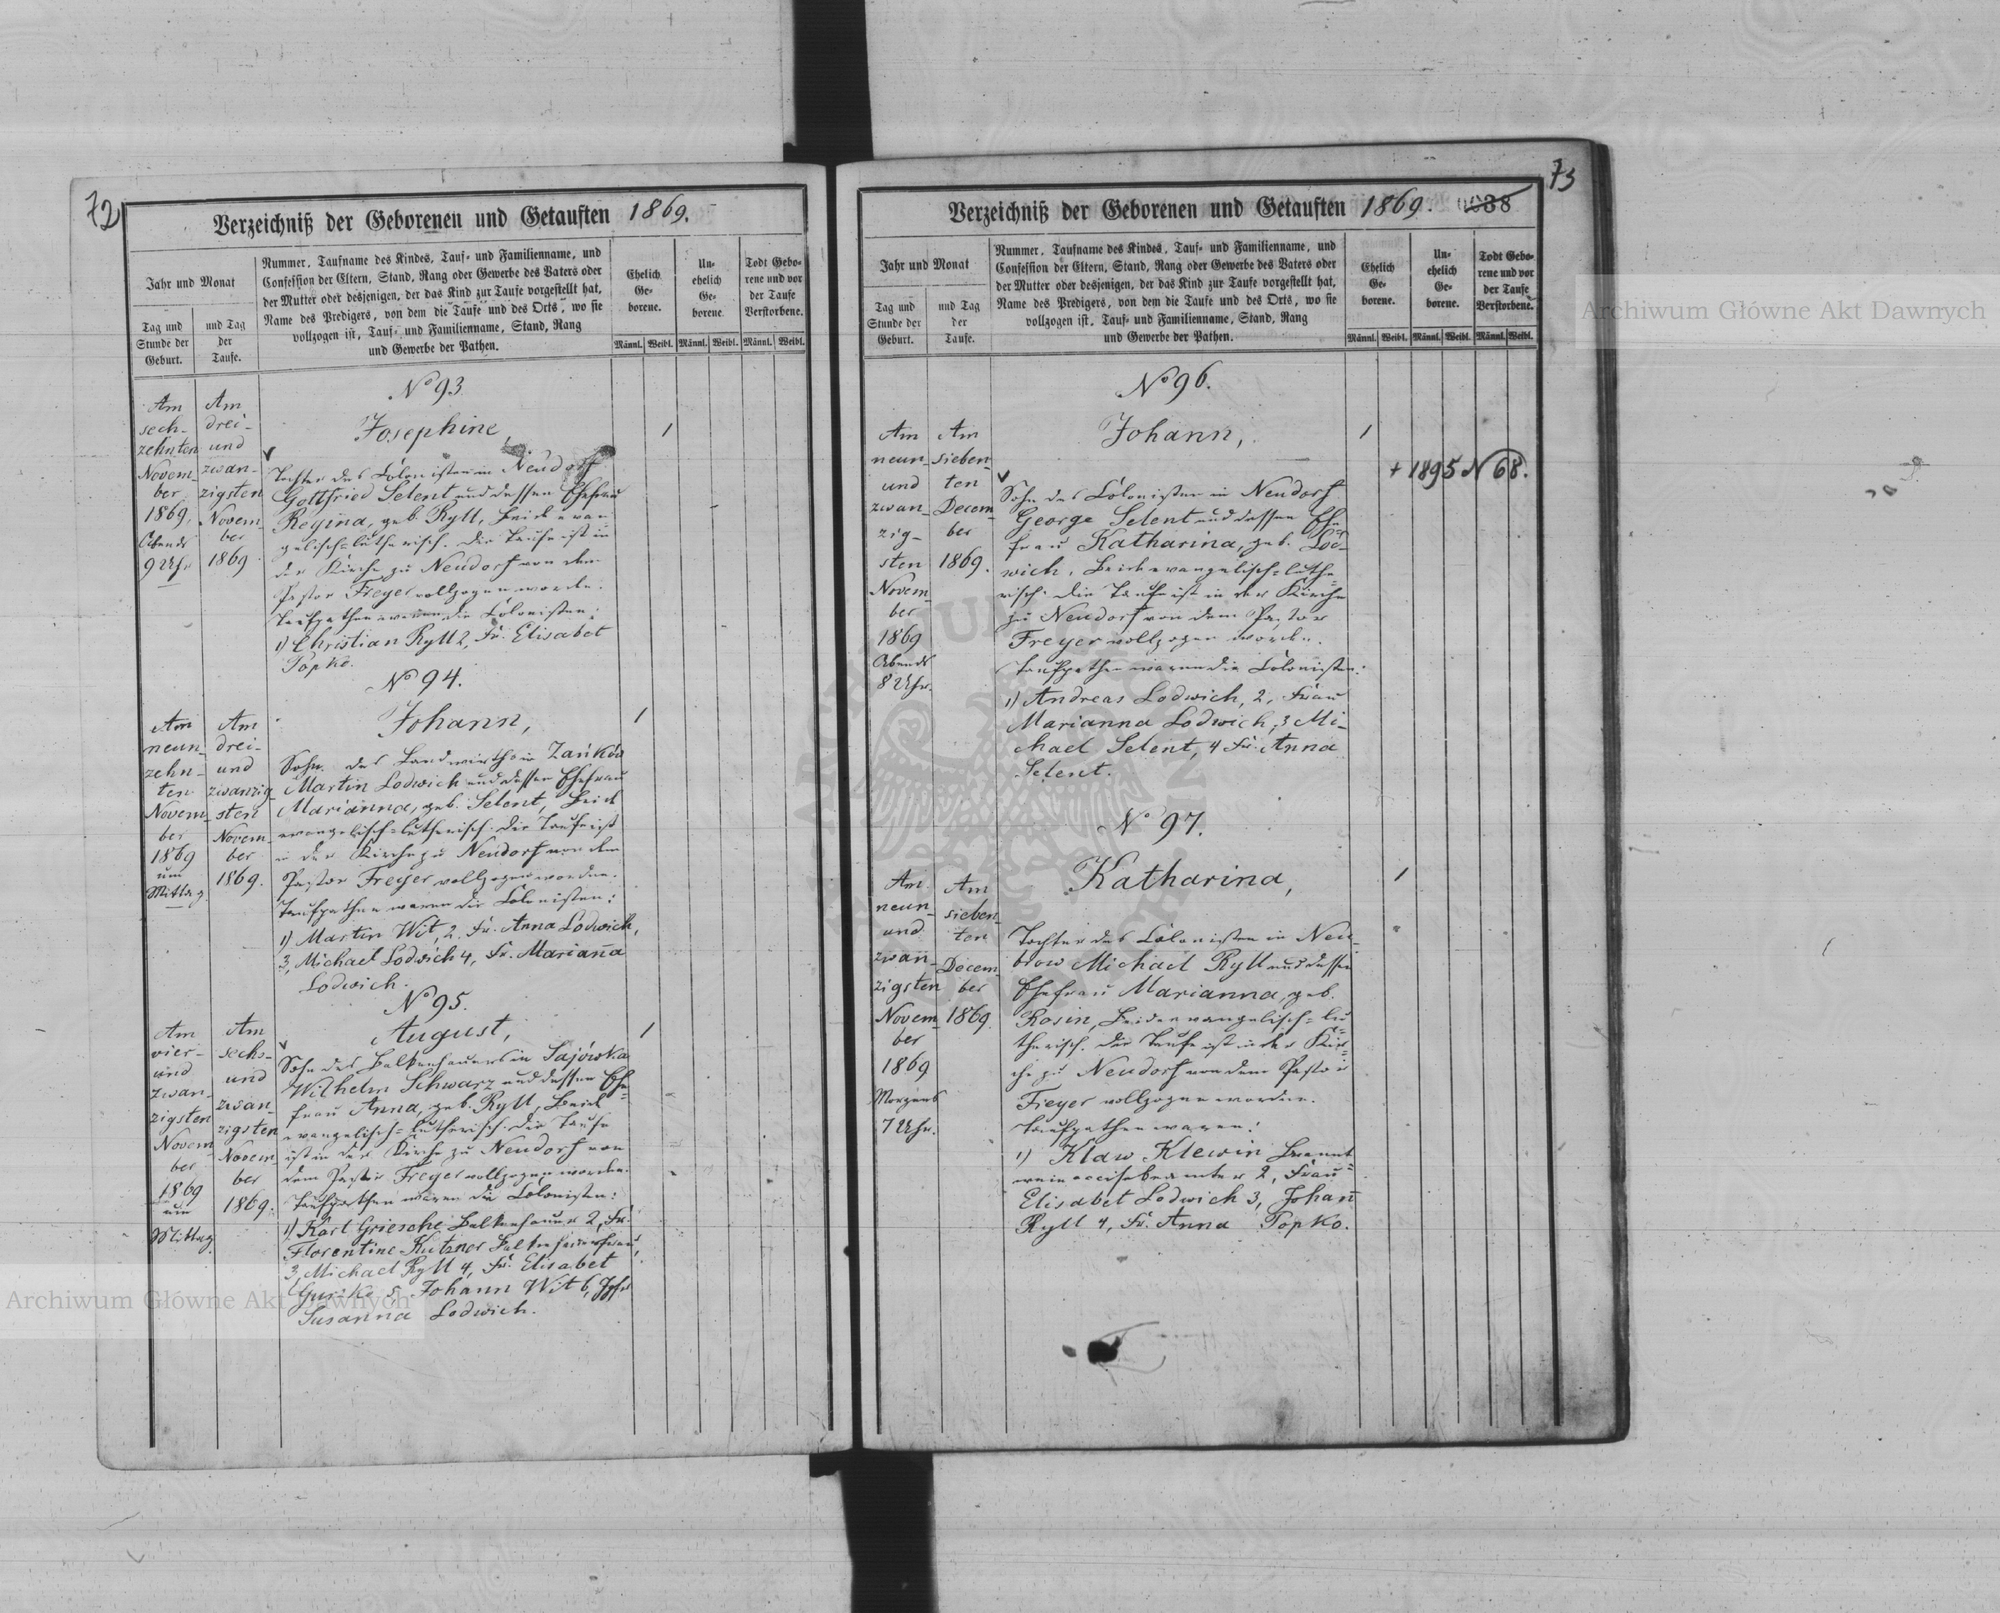 72
Verzeichniß der Geborenen und Getauften 1869.
Jahr und Monat
Tag und
Stunde der
Geburt.
und Tag
der
Taufe.
Nummer, Taufname des Kindes, Tauf- und Familienname, und
Confession der Eltern, Stand, Rang oder Gewerbe des Vaters oder
der Mutter oder desjenigen, der das Kind zur Taufe vorgestellt hat,
Name des Predigers, von dem die Taufe und des Orts, wo sie
vollzogen ist, Tauf- und Familienname, Stand, Rang
und Gewerbe der Pathen.
Ehelich
Ge-
borene.
Un-
ehelich
Ge-
borene
Todt Gebo-
rene und vor
der Taufe
Verstorbene.
Männl. Weibl. Männl. Weibl. Männl. Weibl.
Am
sech-
zehnten
Novem-
ber
1869,
Abends
9 Uhr
Am
drei-
und
zwan-
zigsten
Novem-
ber
1869.
No 93.
Josephine,
Tochter des Colonisten in Neudorf
Gottfried Selent und dessen Ehefrau
Regina, geb. Ryll, Beide evan-
gelisch-lutherisch. Die Taufe ist in
der Kirche zu Neudorf von dem
Pastor Freyer vollzogen worden.
Taufpathen waren die Colonisten:
1) Christian Ryll 2, Fr. Elisabet
Popko.
1
Am
neun-
zehn-
ten
Novem-
ber
1869
um
Mittag
Am
drei-
und
zwanzig-
sten
Novem-
ber
1869.
No 94.
Johann,
Sohn des Landwirths in Zańków
Martin Lodwich und dessen Ehefrau
Marianna, geb. Selent, Beide
evangelisch-lutherisch. Die Taufe ist
in der Kirche zu Neudorf von dem
Pastor Freyer vollzogen worden.
Taufpathen waren die Colonisten:
1) Martin Wit, 2. Fr. Anna Lodwich,
3, Michael Lodwich 4, Fr. Mariana
Lodwich.
1
Am
vier-
und
zwan-
zigsten
Novem-
ber
1869
um
Mittag
Am
sechs-
und
zwan-
zigsten
Novem
ber
1869.
No 95.
August,
Sohn des Balkenhauers in Sajówka
Wilhelm Schwarz und dessen Ehe-
frau Anna, geb. Ryll, Beide
evangelisch-lutherisch. Die Taufe
ist in der Kirche zu Neudorf von
dem Pastor Freyer vollzogen worden.
Taufpathen waren die Colonisten:
1) Karl Griesche Balkenhauer 2, Fr.
Florentine Kutzner Balkenhauerfrau,
3, Michael Ryll 4, Fr. Elisabet
5, Johann Wit 6,
Susanna Lodwich.
1
73
Verzeichniß der Geborenen und Getauften 1869. 0038
Jahr und Monat
Tag und
Stunde der
Geburt.
und Tag
der
Taufe.
Nummer, Taufname des Kindes, Tauf- und Familienname, und
Confession der Eltern, Stand, Rang oder Gewerbe des Vaters oder
der Mutter oder desjenigen, der das Kind zur Taufe vorgestellt hat,
Name des Predigers, von dem die Taufe und des Orts, wo sie
vollzogen ist, Tauf- und Familienname, Stand, Rang
und Gewerbe der Pathen.
Ehelich
Ge-
borene.
Un-
ehelich
Ge-
borene.
Todt Gebo-
rene und vor
der Taufe
Verstorbene.
Männl. Weibl. Männl. Weibl. Männl. Weibl.
Am
neun-
und
zwan-
zig-
sten
Novem-
ber
1869
Abends
8 Uhr.
Am
sieben-
ten
Decem-
ber
1869.
No 96.
Johann,
Sohn des Colonisten in Neudorf
George Selent und dessen Ehe-
frau Katharina, geb. Lod-
wich, Beide evangelisch-luthe-
risch. Die Taufe ist in der Kirche
zu Neudorf von dem Pastor
Freyer vollzogen worden.
Taufpathen waren die Colonisten:
1) Andreas Lodwich, 2, Frau
Marianna Lodwich, 3 Mi-
chael Selent, 4 Fr. Anna
Selent.
1
+ 1895 N 68.
Am
neun-
und
zwan-
zigsten
Novem-
ber
1869
Morgens
7 Uhr.
Am
sieben-
ten
Decem-
ber
1869.
No 97.
Katharina,
Tochter des Colonisten in Neu-
brow Michael Ryll und dessen
Ehefrau Marianna, geb.
Rosin, Beide evangelisch-lu-
therisch. Die Taufe ist in der Kir-
che zu Neudorf von dem Pastor
Freyer vollzogen worden.
Taufpathen waren:
1) Klaw Klewin Brannt-
wein accisebeamter 2, Frau
Elisabet Lodwich 3, Johan
Ryll 4, Fr. Anna Popko.
1
Archiwum Główne Akt Dawnych
Archiwum Główne Akt Dawnych